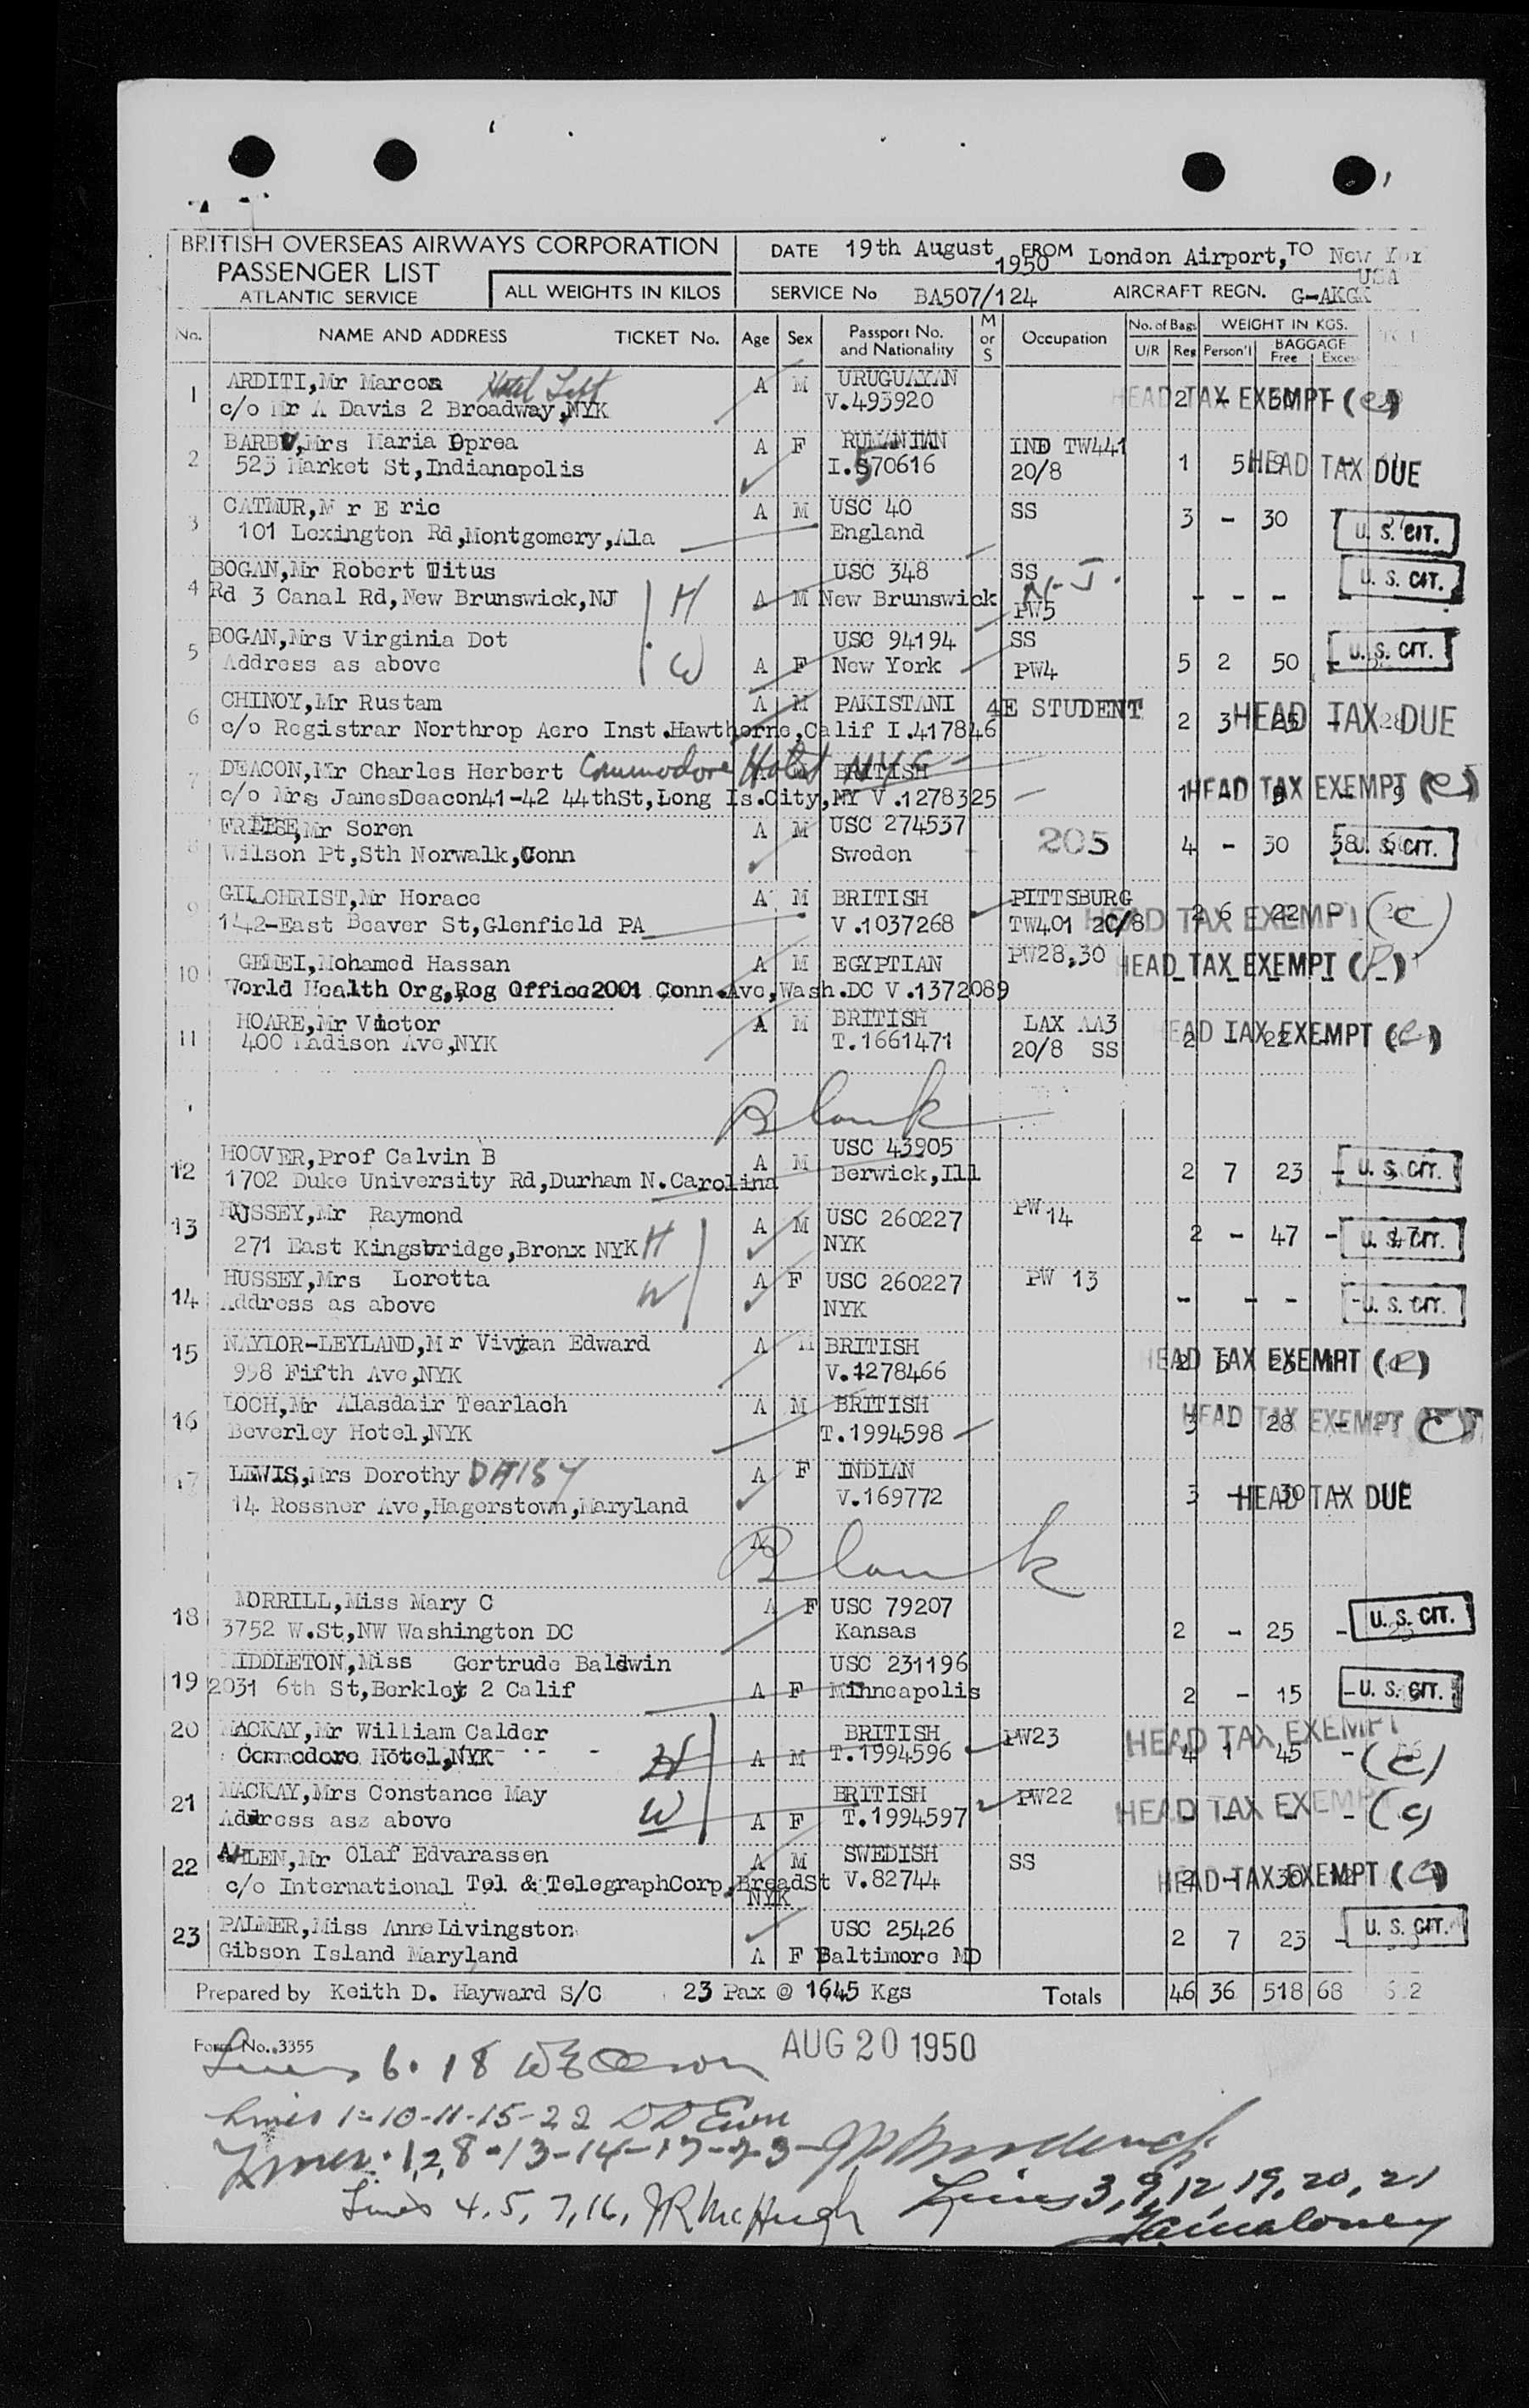 BRITISH OVERSEAS AIRWAYS CORPORATION
PASSENGER LIST
ATLANTIC SERVICE
ALL WEIGHTS IN KILOS
DATE 19th August 1950 FROM London Airport, TO New Yor
USA
SERVICE No BA507/124 AIRCRAFT REGN. G-AKGK
No. NAME AND ADDRESS TICKET No. Age Sex Passport No. and Nationality M or S Occupation No. of Bags U/R Reg WEIGHT IN KGS. Person'l BAGGAGE Free Excess
1 ARDITI, Mr Marcos Hotel Taft A M URUGUAYAN HEAD TAX EXEMPT
c/o Mr A Davis 2 Broadway, NYK V.493920
2 BARBU, Mrs Maria Oprea A F RUMANIAN IND TW441 1 5 HEAD TAX DUE
523 Market St, Indianapolis I.570616 20/8
3 CATMUR, M r E ric A M USC 40 SS 3 - 30 U. S. CIT.
101 Lexington Rd, Montgomery, Ala England
4 BOGAN, Mr Robert Titus USC 348 SS N.J. U. S. CIT.
Rd 3 Canal Rd, New Brunswick, NJ H A M New Brunswick PW5 - - - -
5 BOGAN, Mrs Virginia Dot USC 94194 SS U. S. CIT.
Address as above W A F New York PW4 5 2 50 -
6 CHINOY, Mr Rustam A M PAKISTANI 4E STUDENT 2 3 25 - 28 HEAD TAX DUE
c/o Registrar Northrop Aero Inst.Hawthorne, Calif I.417846
7 DEACON, Mr Charles Herbert Commodore Hotel NYC M BRITISH
c/o Mrs JamesDeacon41-42 44thSt, Long Is.City, NY V.1278325 1 HEAD TAX EXEMPT (C)
8 FREESE, Mr Soren A M USC 274537 205 4 - 30 38 U. S. CIT.
Wilson Pt, Sth Norwalk, Conn Sweden
9 GILCHRIST, Mr Horace A M BRITISH PITTSBURG 2 6 22 - HEAD TAX EXEMPT (C)
142-East Beaver St, Glenfield PA V.1037268 TW401 20/8
10 GEMEI, Mohamed Hassan A M EGYPTIAN PW28,30 HEAD TAX EXEMPT
World Health Org, Reg Office2001 Conn.Ave, Wash.DC V.1372089
11 HOARE, Mr Victor A M BRITISH LAX AA3 2 - 22 HEAD TAX EXEMPT
400 Madison Ave, NYK T.1661471 20/8 SS
Blank
12 HOOVER, Prof Calvin B A M USC 43905 2 7 23 - U. S. CIT.
1702 Duke University Rd, Durham N.Carolina Berwick, Ill
13 HUSSEY, Mr Raymond A M USC 260227 PW 14 2 - 47 - U. S. CIT.
271 East Kingsbridge, Bronx NYK H NYK
14 HUSSEY, Mrs Loretta A F USC 260227 PW 13 - - - - U. S. CIT.
Address as above W NYK
15 NAYLOR-LEYLAND, M r Vivyan Edward A M BRITISH 2 HEAD TAX EXEMPT
998 Fifth Ave, NYK V.1278466
16 LOCH, Mr Alasdair Tearlach A M BRITISH 3 - 28 - HEAD TAX EXEMPT (C)
Beverley Hotel, NYK T.1994598
17 LEWIS, Mrs Dorothy DAISY A F INDIAN 3 - 30 HEAD TAX DUE
14 Rossner Ave, Hagerstown, Maryland V.169772
A Blank
18 MORRILL, Miss Mary C A F USC 79207 2 - 25 - U. S. CIT.
3752 W.St, NW Washington DC Kansas
19 MIDDLETON, Miss Gertrude Baldwin USC 231196
2031 6th St, Berkley 2 Calif A F Minneapolis 2 - 15 - U. S. CIT.
20 MACKAY, Mr William Calder BRITISH PW23 HEAD TAX EXEMPT
Commodore Hotel, NYK H A M T.1994596 4 1 45 - (C)
21 MACKAY, Mrs Constance May BRITISH PW22 HEAD TAX EXEMPT (C)
Address asz above W A F T.1994597
22 AHLEN, Mr Olaf Edvarassen A M SWEDISH SS 2 - 30 HEAD TAX EXEMPT (C)
c/o International Tel & TelegraphCorp, BroadSt V.82744
NYK
23 PALMER, Miss Anne Livingston USC 25426 2 7 23 - U. S. CIT.
Gibson Island Maryland A F Baltimore MD
Prepared by Keith D. Hayward S/C 23 Pax @ 1645 Kgs Totals 46 36 518 68
Form No. 3355 AUG 20 1950
Lines 6. 18
Lines 1-10-11-15-22
Lines 1,2,8-13-14-17-23
Lines 4, 5, 7, 16, JR McHugh
Lines 3, 9, 12, 19, 20, 21